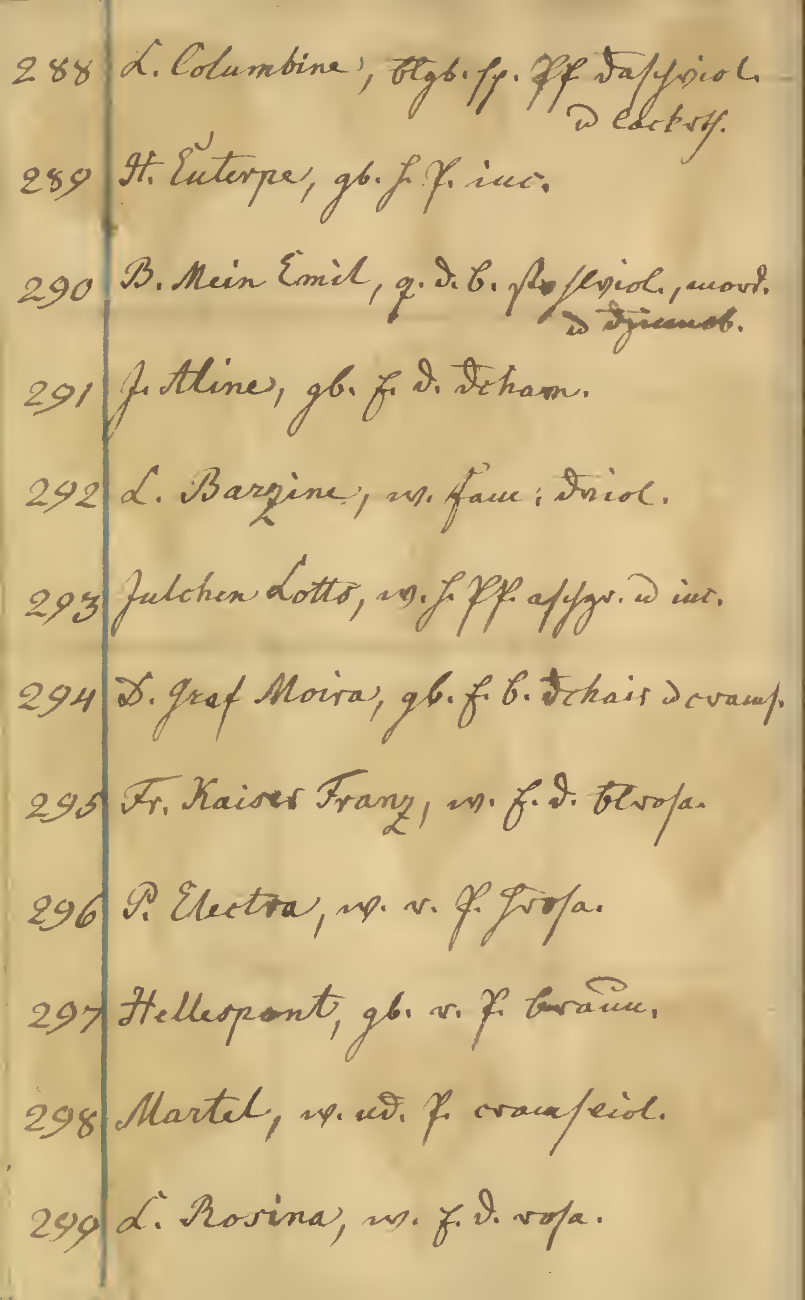 288 L. Columbine, blgb. sp. Pf daschviol.
u lackrth.
289 H. Euterpe, gb. h. P. inc.
290 B. Mein Emil, g. d. b. viol., mord.
u
291 J. Aline, gb. f. d. dcham.
292 L. Barzine, w. fam: dviol.
293 Julchen Lotto, w. h. Pf. aschgr. u inc.
294 D. Graf Moira, gb. f. b. dchair u crams.
295 Fr. Kaiser Franz, w. f. d. blrosa.
296 P. Electra, w. r. P. hrosa.
297 Hellespont, gb. r. P. braun.
298 Martel, w. ud. P. cramsviol.
299 L. Rosina, w. f. d. rosa.